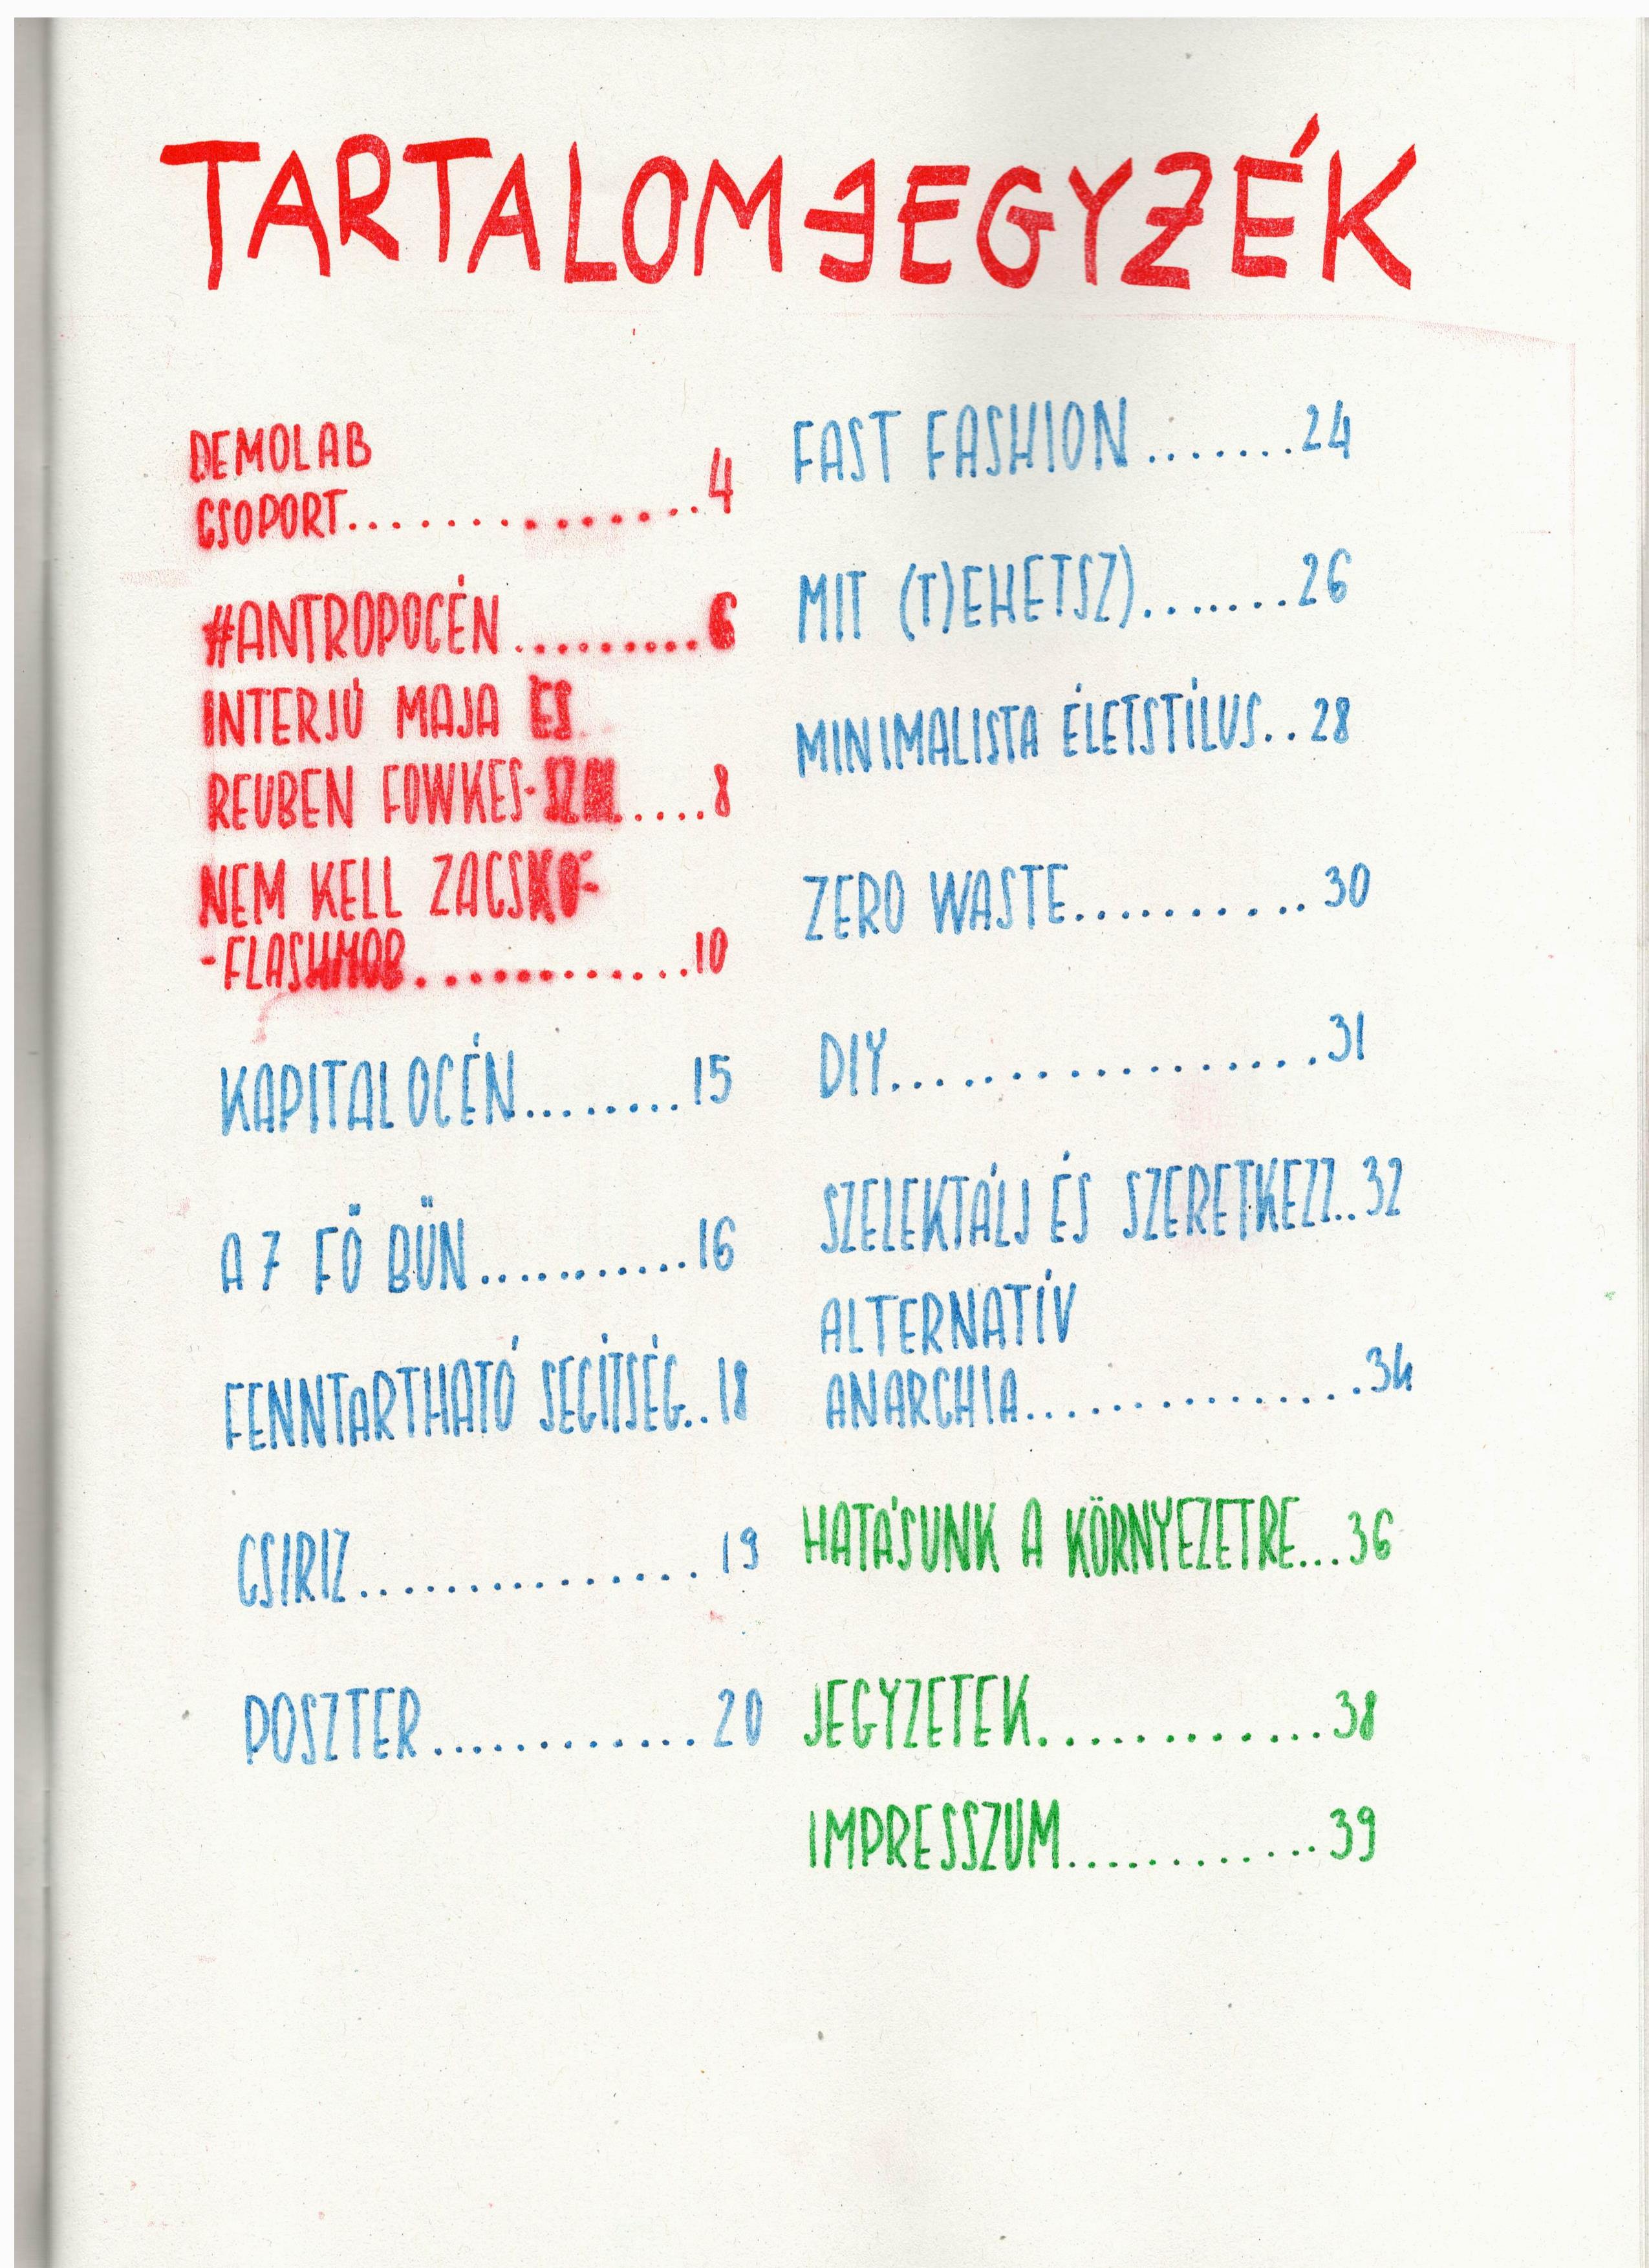 TARTALOMJEGYZÉK
DEMOLAB
CSOPORT..............4
#ANTROPOCÉN..........6
INTERJÚ MAJA ÉS
REUBEN FOWKES-SZAL.....8
NEM KELL ZACSKÓ-
-FLASHMOB.............10
KAPITALOCÉN........15
A 7 FŐ BŰN...........16
FENNTARTHATÓ SEGÍTSÉG..18
CSIRIZ................19
POSZTER............20
FAST FASHION.......24
MIT (T)EHETSZ).......26
MINIMALISTA ÉLETSTÍLUS..28
ZERO WASTE..........30
DIY..................31
SZELEKTÁLJ ÉS SZERETKEZZ..32
ALTERNATÍV
ANARCHIA..............34
HATÁSUNK A KÖRNYEZETRE...36
JEGYZETEK.............38
IMPRESSZUM............39